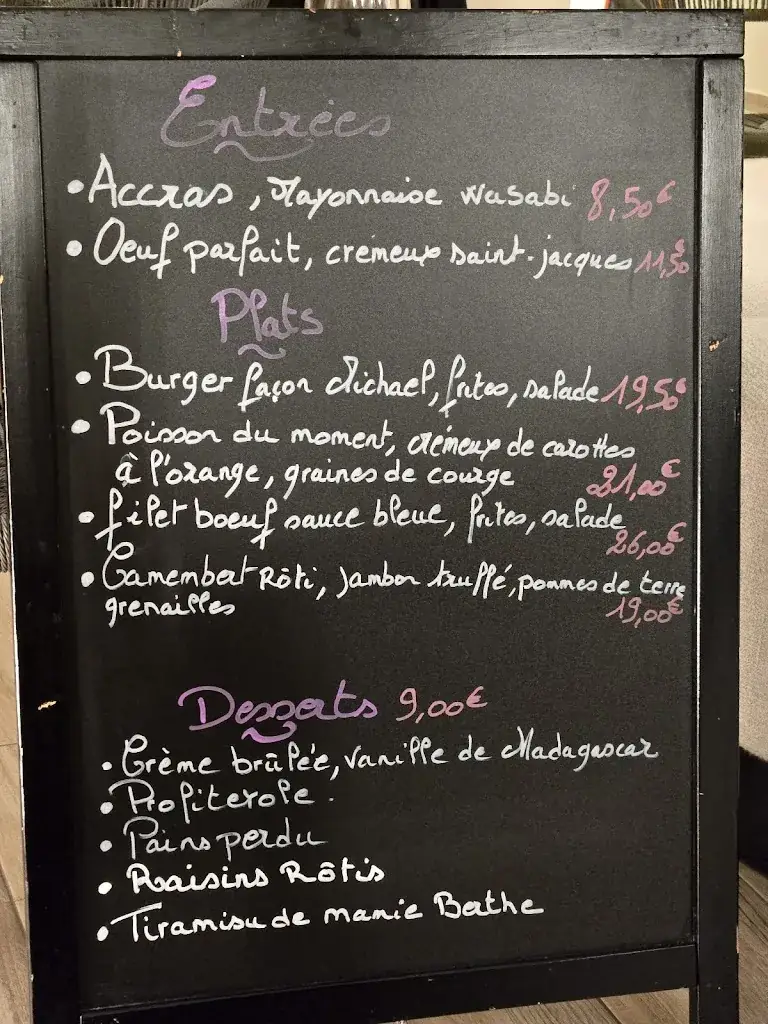 Entrées
• Accras, Mayonnaise wasabi 8,50€
• Oeuf parfait, crémeux saint-jacques 11,50€
Plats
• Burger façon Michael, frites, salade 19,50€
• Poisson du moment, crémeux de carottes
à l'orange, graines de courge 21,00€
• filet boeuf sauce bleue, frites, salade
26,00€
• Camembert Rôti, jambon truffé, pommes de terre
grenailles 19,00€
Desserts 9,00€
• Crème brûlée, vanille de Madagascar
• Profiterole.
• Pains perdu
• Raisins Rôtis
• Tiramisu de mamie Berthe